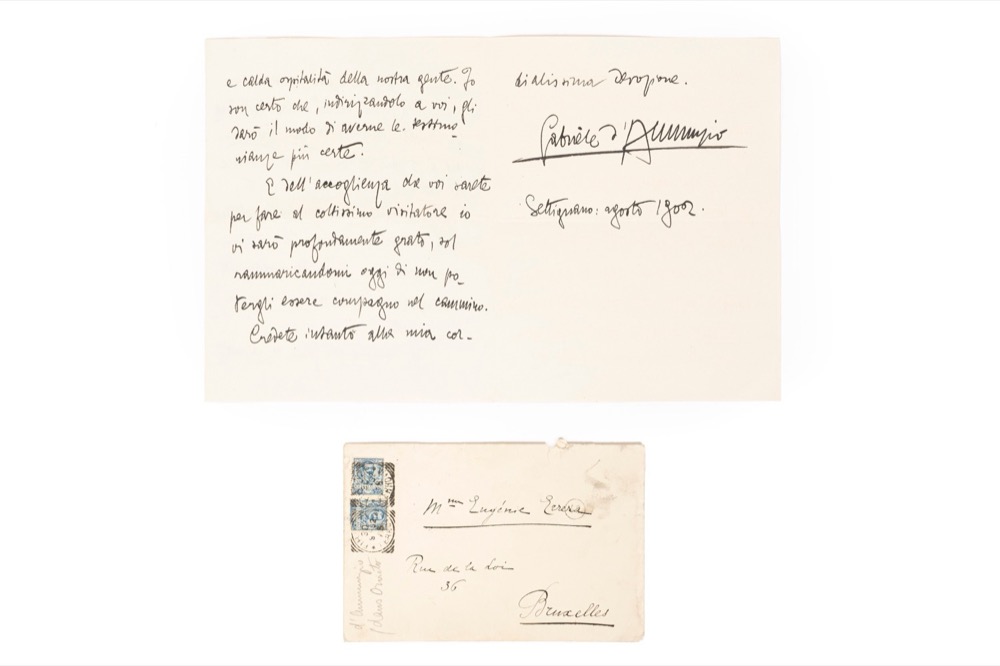 e calda ospitalità della nostra gente. Io
son certo che, indirizzandolo a voi, gli
darò il modo di averne le testimo-
nianze più certe.
E dell'accoglienza che voi sarete
per fare al coltissimo visitatore io
vi sarò profondamente grato, sol
rammaricandomi oggi di non po-
tergli essere compagno nel cammino.
Credete intanto alla mia cor-
dialissima devozione.
Gabriele d'Annunzio
Settignano: agosto 1902.
Mme Eugénie
Rue de la Loi
36
Bruxelles
d'Annunzio